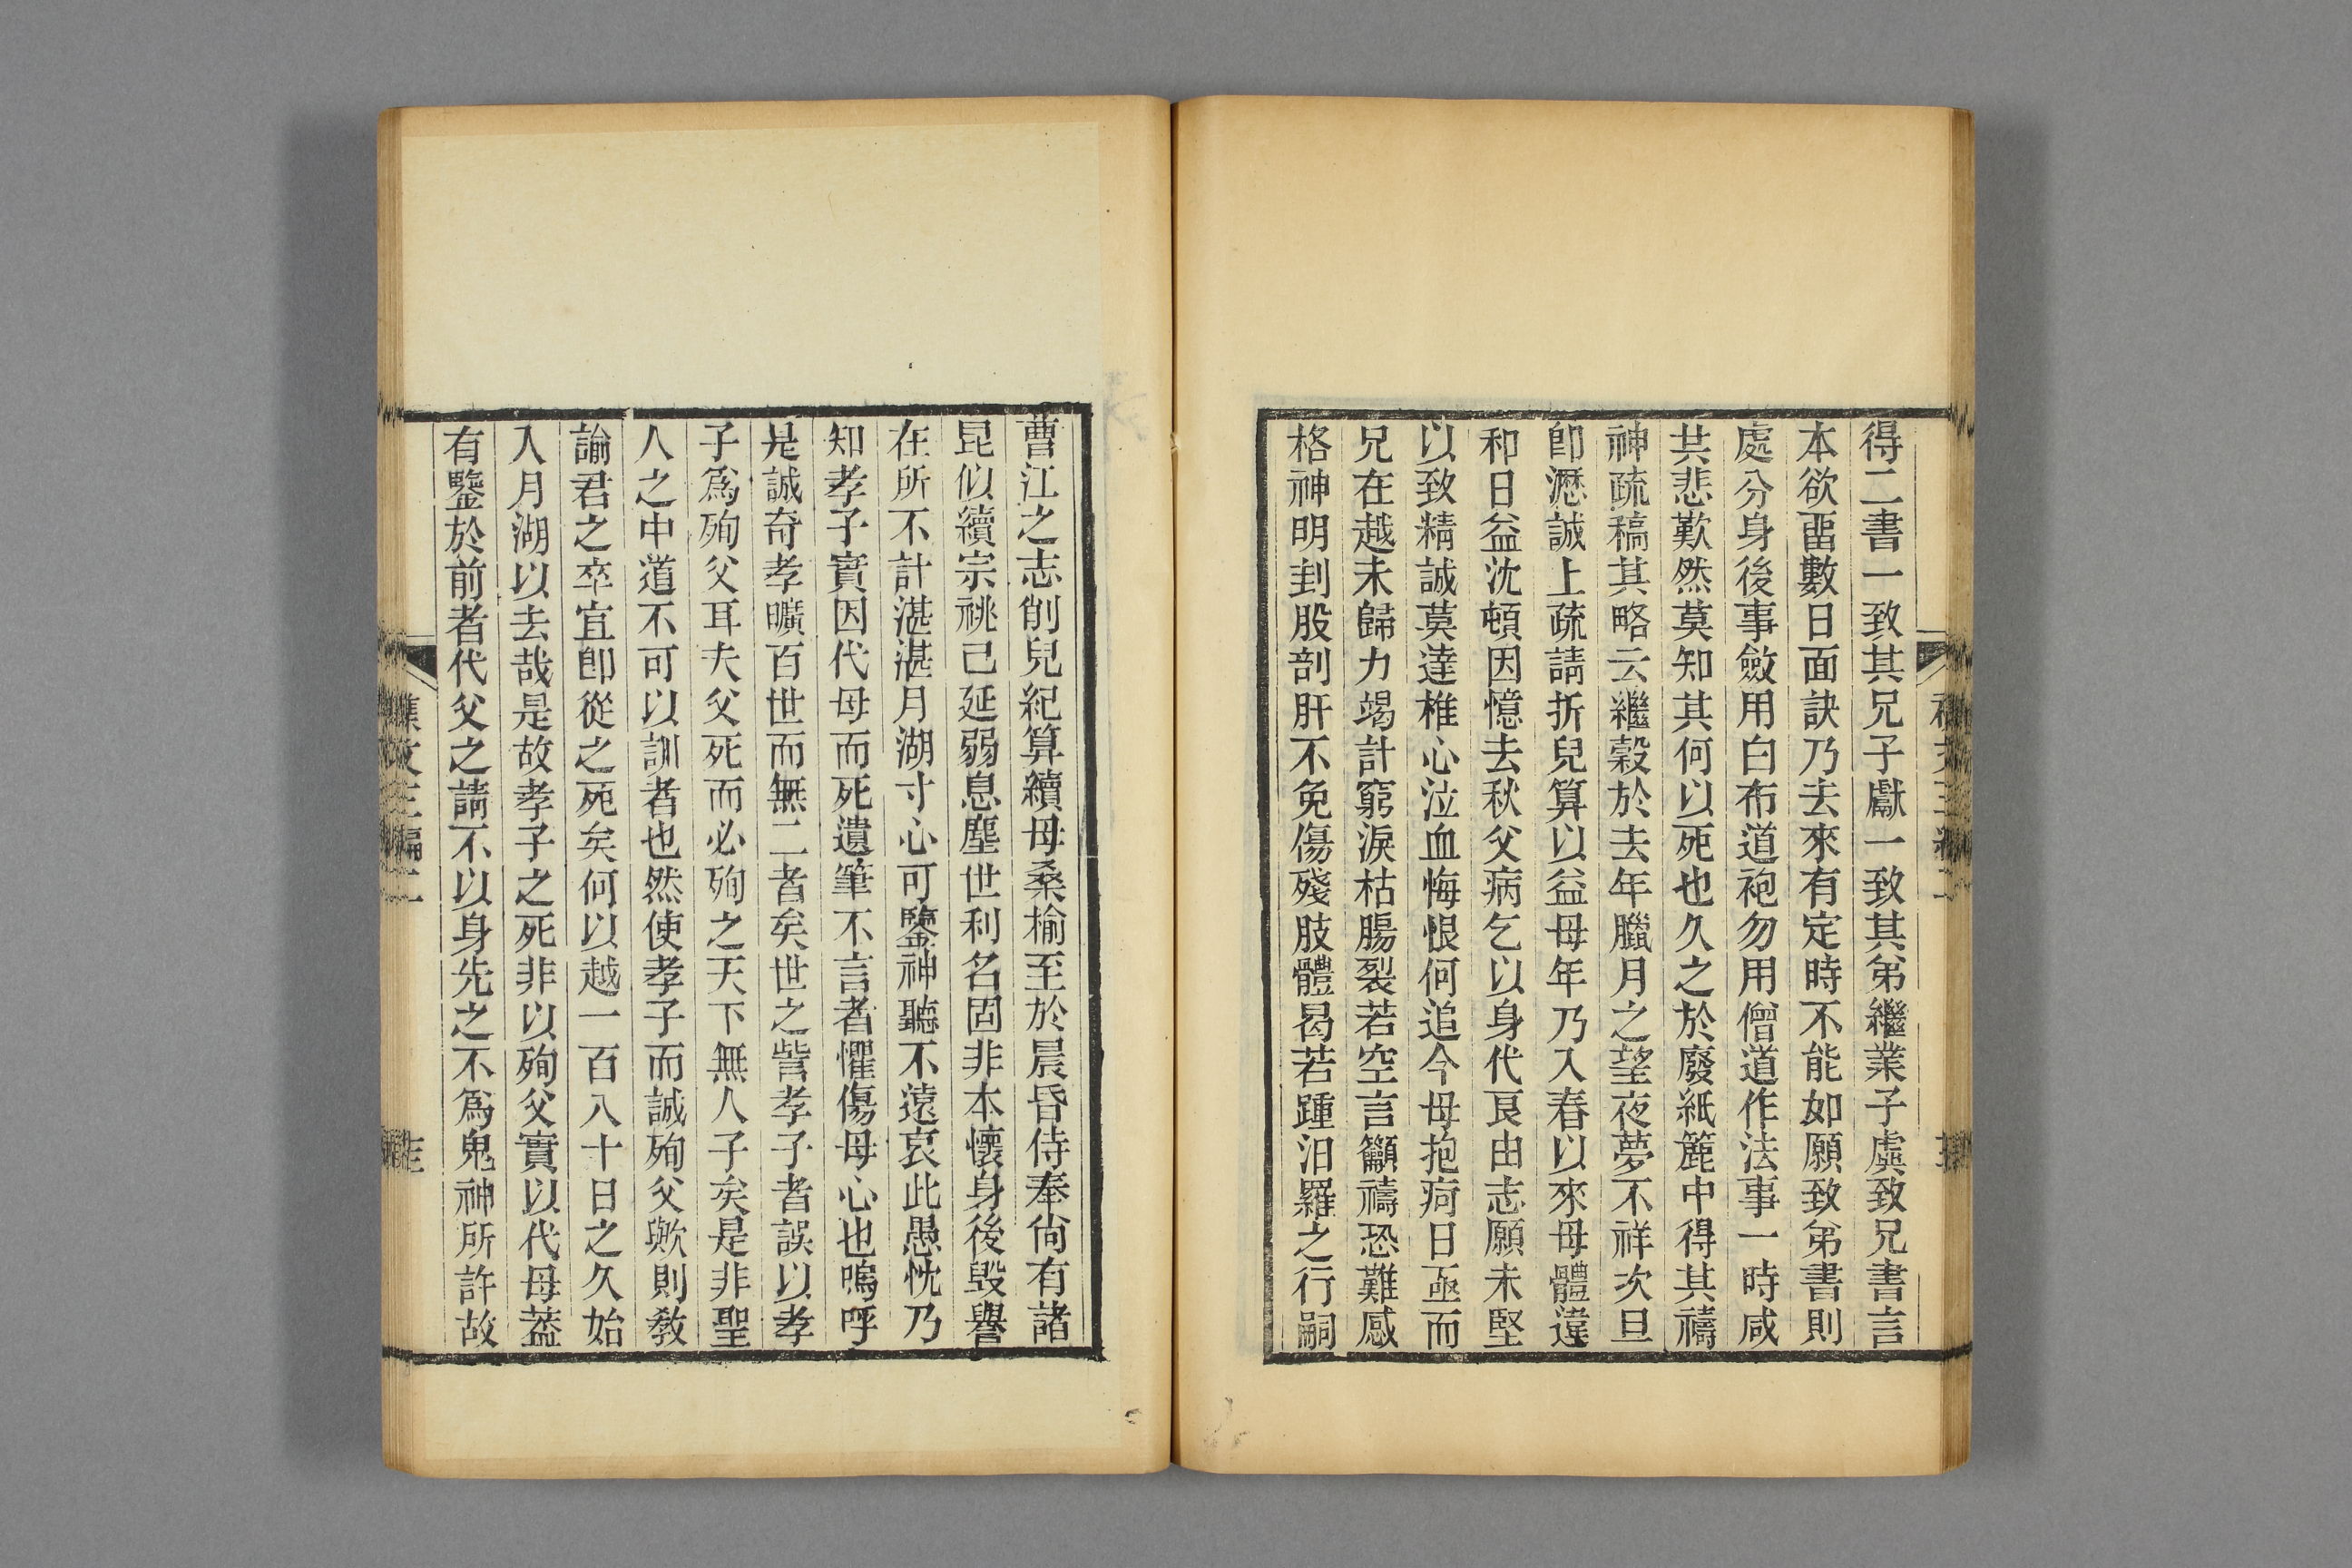 得二書一致其兄子獻一致其弟繼業子虞致兄書言
本欲畱數日面訣乃去來有定時不能如願致弟書則
處分身後事斂用白布道袍勿用僧道作法事一時咸
共悲歎然莫知其何以死也久之於廢紙簏中得其禱
神疏稿其略云繼穀於去年臘月之望夜夢不祥次旦
卽瀝誠上疏請折兒算以益母年乃入春以來母體違
和日益沈頓因憶去秋父病乞以身代良由志願未堅
以致精誠莫達椎心泣血悔恨何追今母抱疴日亟而
兄在越未歸力竭計窮淚枯腸裂若空言籲禱恐難感
格神明刲股剖肝不免傷殘肢體曷若踵汨羅之行嗣
曹江之志削兒紀算續母桑榆至於晨昏侍奉尙有諸
昆似續宗祧己延弱息塵世利名固非本懷身後毀譽
在所不計湛湛月湖寸心可鑒神聽不遠哀此愚忱乃
知孝子實因代母而死遺筆不言者懼傷母心也嗚呼
是誠奇孝曠百世而無二者矣世之訾孝子者誤以孝
子爲殉父耳夫父死而必殉之天下無人子矣是非聖
人之中道不可以訓者也然使孝子而誠殉父歟則敎
諭君之卒宜卽從之死矣何以越一百八十日之久始
入月湖以去哉是故孝子之死非以殉父實以代母蓋
有鑒於前者代父之請不以身先之不爲鬼神所許故
集文三編二